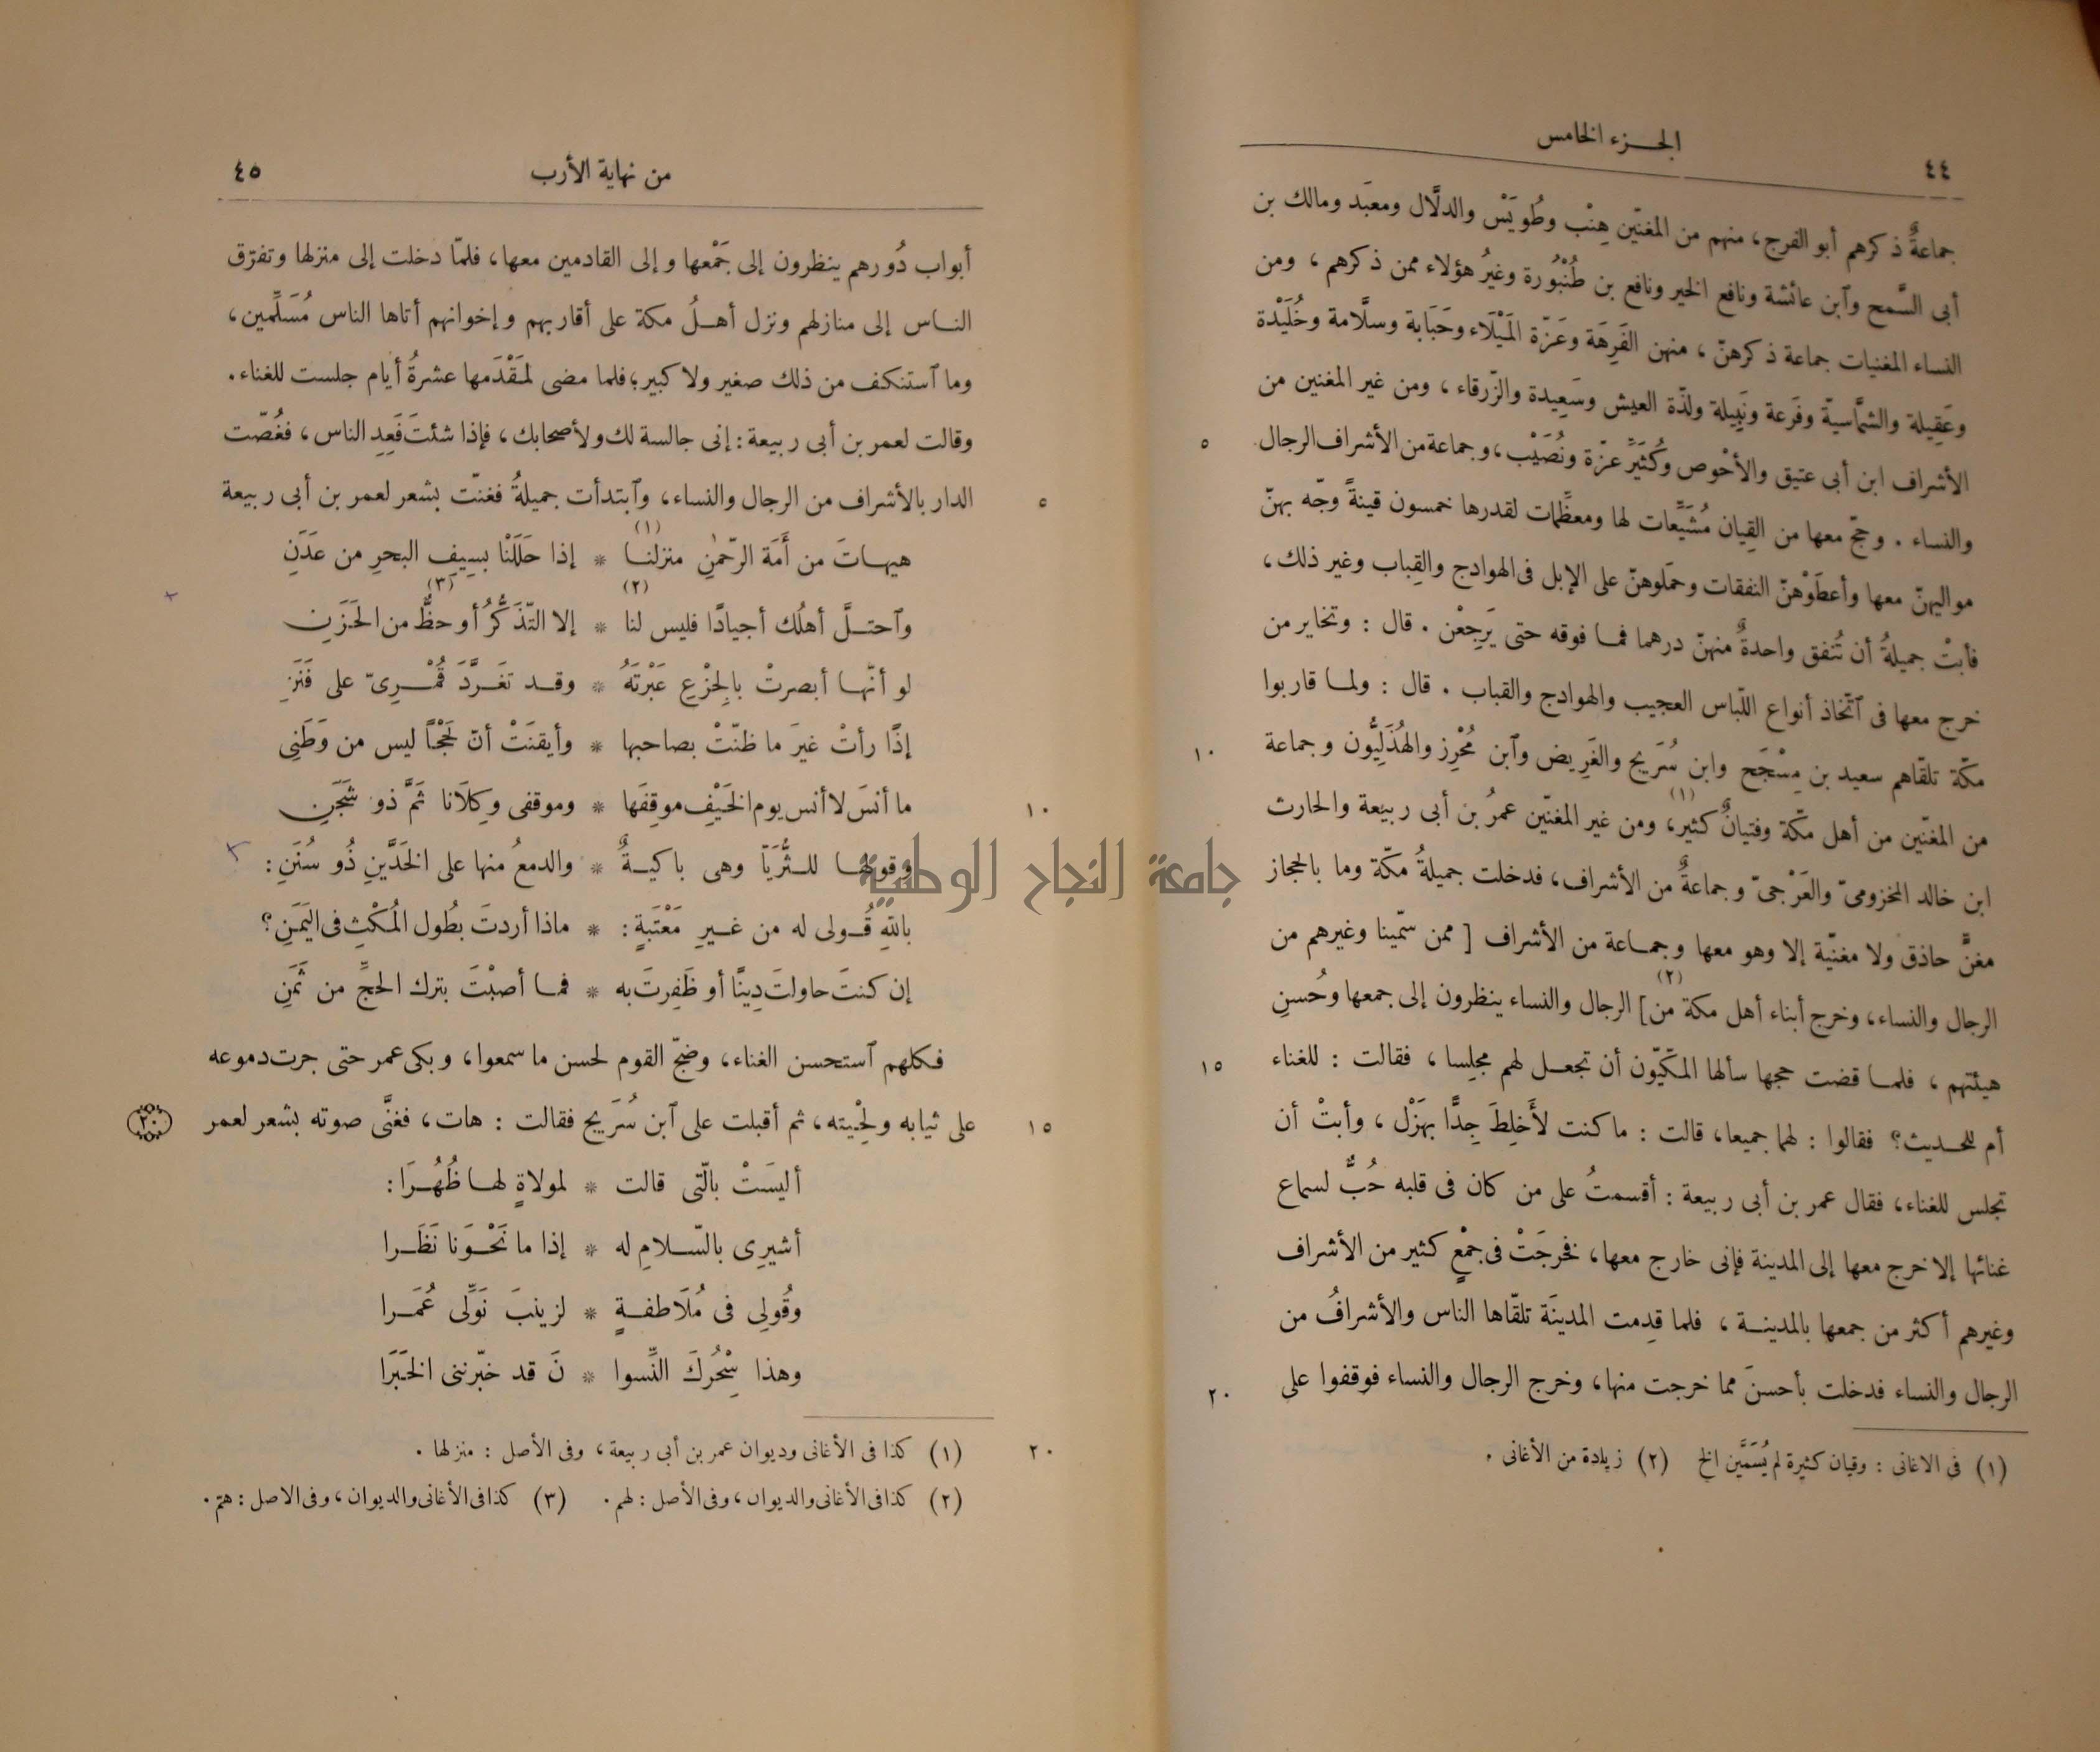 الجزء الخامس
٤٤
جماعةٌ ذكرهم أبو الفرج، منهم من المغنّين هِنْب وطُوَيْس والدلّال ومعبَد ومالك بن
أبى السَّمح وٱبن عائشة ونافع الخير ونافع بن طُنْبُورة وغيرُ هؤلاء ممن ذكرهم، ومن
النساء المغنيات جماعة ذكرهنّ، منهن الفَرِهَة وعَزّة المَيْلَاء وحَبَابة وسلَّامة وخُلَيْدة
وعَقِيلة والشمَّاسيّة وفَرعة ونَبِيلة ولذّة العيش وسَعِيدة والزّرقاء، ومن غير المغنين من
الأشراف ابن أبى عتيق والأحْوص وكُثَيِّر عزّة ونُصَيْب، وجماعة من الأشراف الرجال
٥
والنساء . وحجّ معها من القِيان مُشَيِّعات لها ومعظِّمات لقدرها خمسون قينةً وجّه بهنّ
مواليهنّ معها وأعطَوْهنّ النفقات وحمَلوهنّ على الإبل فى الهوادج والقِباب وغير ذلك،
فأبتْ جميلةُ أن تُنفق واحدةٌ منهنّ درهما فما فوقه حتى يَرجِعْن . قال : وتخاير من
خرج معها فى ٱتّخاذ أنواع اللّباس العجيب والهوادج والقباب . قال : ولما قاربوا
مكّة تلقّاهم سعيد بن مِسْجَح وابن سُرَيج والغَرِيض وٱبن مُحْرِز والهُذَلِيُّون وجماعة
١٠
من المغنّين من أهل مكّة وفتيانٌ كثير(١)، ومن غير المغنّين عمرُ بن أبى ربيعة والحارث
ابن خالد المخزومىّ والعَرْجىّ وجماعةٌ من الأشراف، فدخلت جميلةُ مكّة وما بالحجاز
مغنٍّ حاذق ولا مغنيّة إلا وهو معها وجماعة من الأشراف [ ممن سمّينا وغيرهم من
الرجال والنساء، وخرج أبناء أهل مكة من](٢) الرجال والنساء ينظرون إلى جمعها وحُسنِ
هيئتهم، فلما قضت حجها سألها المكّيّون أن تجعل لهم مجلِسا، فقالت : للغناء
١٥
أم للحديث؟ فقالوا : لهما جميعا، قالت : ما كنت لأَخلِطَ جِدًّا بهَزْل، وأبتْ أن
تجلس للغناء، فقال عمر بن أبى ربيعة : أقسمتُ على من كان فى قلبه حُبٌّ لسماع
غنائها إلا خرج معها إلى المدينة فإنى خارج معها، فخرجَتْ فى جمْعٍ كثير من الأشراف
وغيرهم أكثر من جمعها بالمدينة، فلما قدِمت المدينَة تلقّاها الناس والأشرافُ من
الرجال والنساء فدخلت بأحسنَ مما خرجت منها، وخرج الرجال والنساء فوقفوا على
٢٠
(١) فى الاغانى : وقيان كثيرة لم يُسَمَّين الخ (٢) زيادة من الأغانى .
من نهاية الأرب
٤٥
أبواب دُورهم ينظرون إلى جَمْعها وإلى القادمين معها، فلمّا دخلت إلى منزلها وتفرّق
الناس إلى منازلهم ونزل أهلُ مكة على أقاربهم وإخوانهم أتاها الناس مُسَلِّمين،
وما ٱستنكف من ذلك صغير ولا كبير؛ فلما مضى لمَقْدَمها عشرةُ أيام جلست للغناء.
وقالت لعمر بن أبى ربيعة : إنى جالسة لك ولأصحابك، فإذا شئتَ فَعِدِ الناس، فغُصّت
الدار بالأشراف من الرجال والنساء، وٱبتدأت جميلةُ فغنّت بشعر لعمر بن أبى ربيعة
٥
هيهاتَ من أَمَة الرّحمٰنِ منزلنا(١) * إذا حَلَلْنَا بسِيفِ البحرِ من عَدَنِ
وٱحتلَّ أهلُك أجيادًا فليس لنا(٢) * إلا التّذَكُّرُ أو حظٌّ(٣) من الحَزَنِ
لو أنّها أبصرتْ بالجِزْعِ عَبْرتَهُ * وقد تغَرَّدَ قُمْرِىّ على فَنَنِ
إذًا رأتْ غيرَ ما ظنّتْ بصاحبها * وأيقنَتْ أنّ لَحْجًا ليس من وَطَنِى
ما أنسَ لا أنس يوم الخَيْفِ موقِفَها * وموقفى وكِلَانا ثَمَّ ذو شَجَنِ
١٠
وقولَها للثُّرَيّا وهى باكيةٌ * والدمعُ منها على الخَدَّينِ ذُو سُنَنِ :
باللهِ قُولى له من غيرِ مَعْتَبَةٍ : * ماذا أردتَ بطُول المُكْثِ فى اليَمَنِ؟
إن كنتَ حاولتَ دِينًا أو ظَفِرتَ به * فما أصبْتَ بترك الحجِّ من ثَمَنِ
فكلهم ٱستحسن الغناء، وضجّ القوم لحسن ما سمعوا، وبكى عمر حتى جرت دموعه
على ثيابه ولِحْيته، ثم أقبلت على ٱبن سُرَيج فقالت : هات، فغنَّى صوته بشعر لعمر
١٥
٢٠
أليسَتْ بالّتى قالت * لمولاةٍ لها ظُهُرَا :
أشيرِى بالسّلامِ له * إذا ما نَحْوَنا نَظَرا
وقُولِى فى مُلَاطفةٍ * لزينبَ نَوِّلِى عُمَرا
وهذا سِحْرُكَ النِّسوا * نَ قد خبّرننى الخَبَرَا
(١) كذا فى الأغانى وديوان عمر بن أبى ربيعة، وفى الأصل : منزلها .
٢٠
(٢) كذا فى الأغانى والديوان، وفى الأصل : لهم . (٣) كذا فى الأغانى والديوان، وفى الاصل : هتم .
جامعة النجاح الوطنية